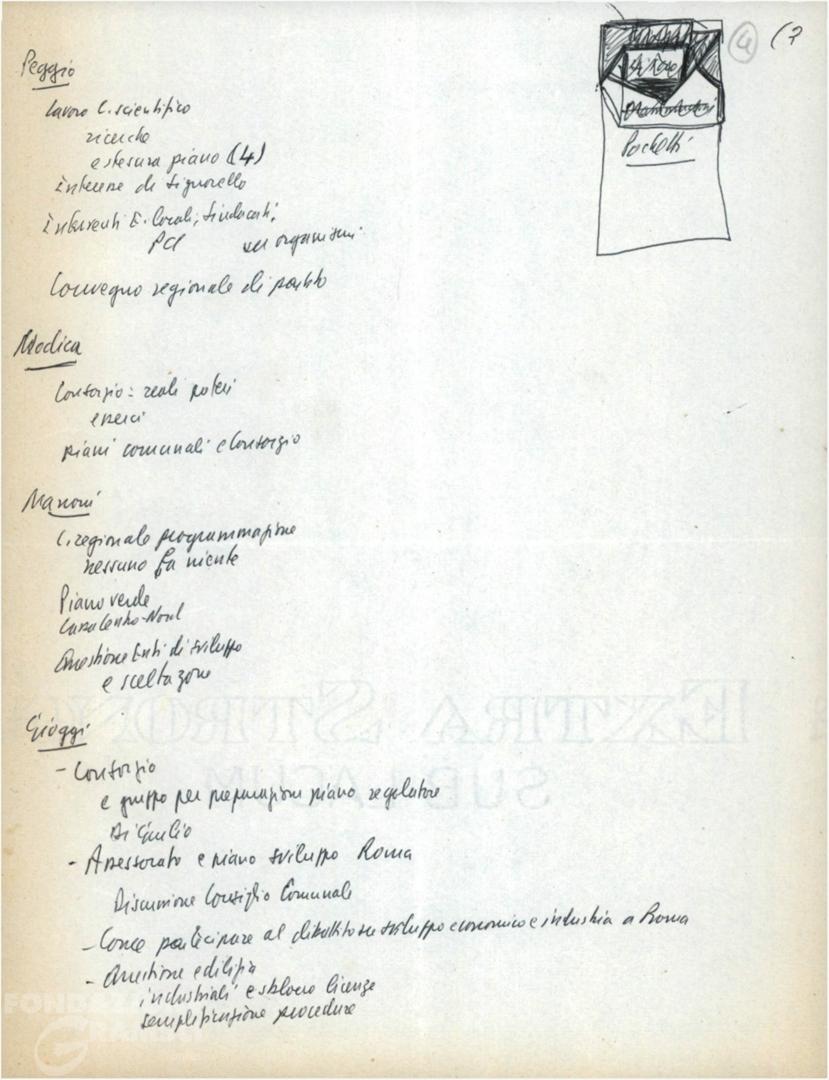 4 (7
Pochetti
Peggio
Lavoro C. scientifico
ricerche
e stesura piano (4)
Interesse di Signorello
Interventi E. locali, Sindacati,
PCI nei organismi
Convegno regionale di partito
Modica
Consorzio: reali poteri
piani comunali e Consorzio
Manoni
C. regionale programmazione
nessuno fa niente
Piano verde
Questione Enti di sviluppo
Gioggi
- Consorzio
e gruppo per preparazioni piano regolatore
Di Giulio
- Assessorato e piano sviluppo Roma
Discussione Consiglio Comunale
- Come partecipare al dibattito su sviluppo economico e industria a Roma
- Questione edilizia
industriali e sblocco licenze
semplificazione procedure
EXTRA STRONG
SUB LACUM
FONDAZIONE
GRAMSCI